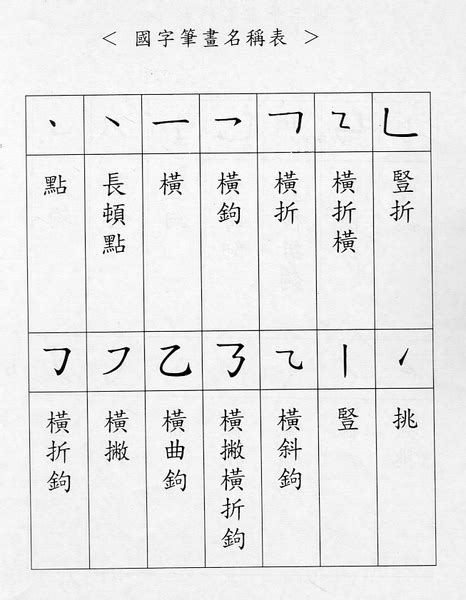 < 國字筆畫名稱表 >
㇔ ㇔ ㇐ ㇖ ㇕ ㇅ ㇗
點
長頓點
橫
橫鉤
橫折
橫折橫
豎折
㇆ ㇇ ㇠ ㇌ ㇈ ㇑ ㇀
橫折鉤
橫撇
橫曲鉤
橫撇橫折鉤
橫斜鉤
豎
挑